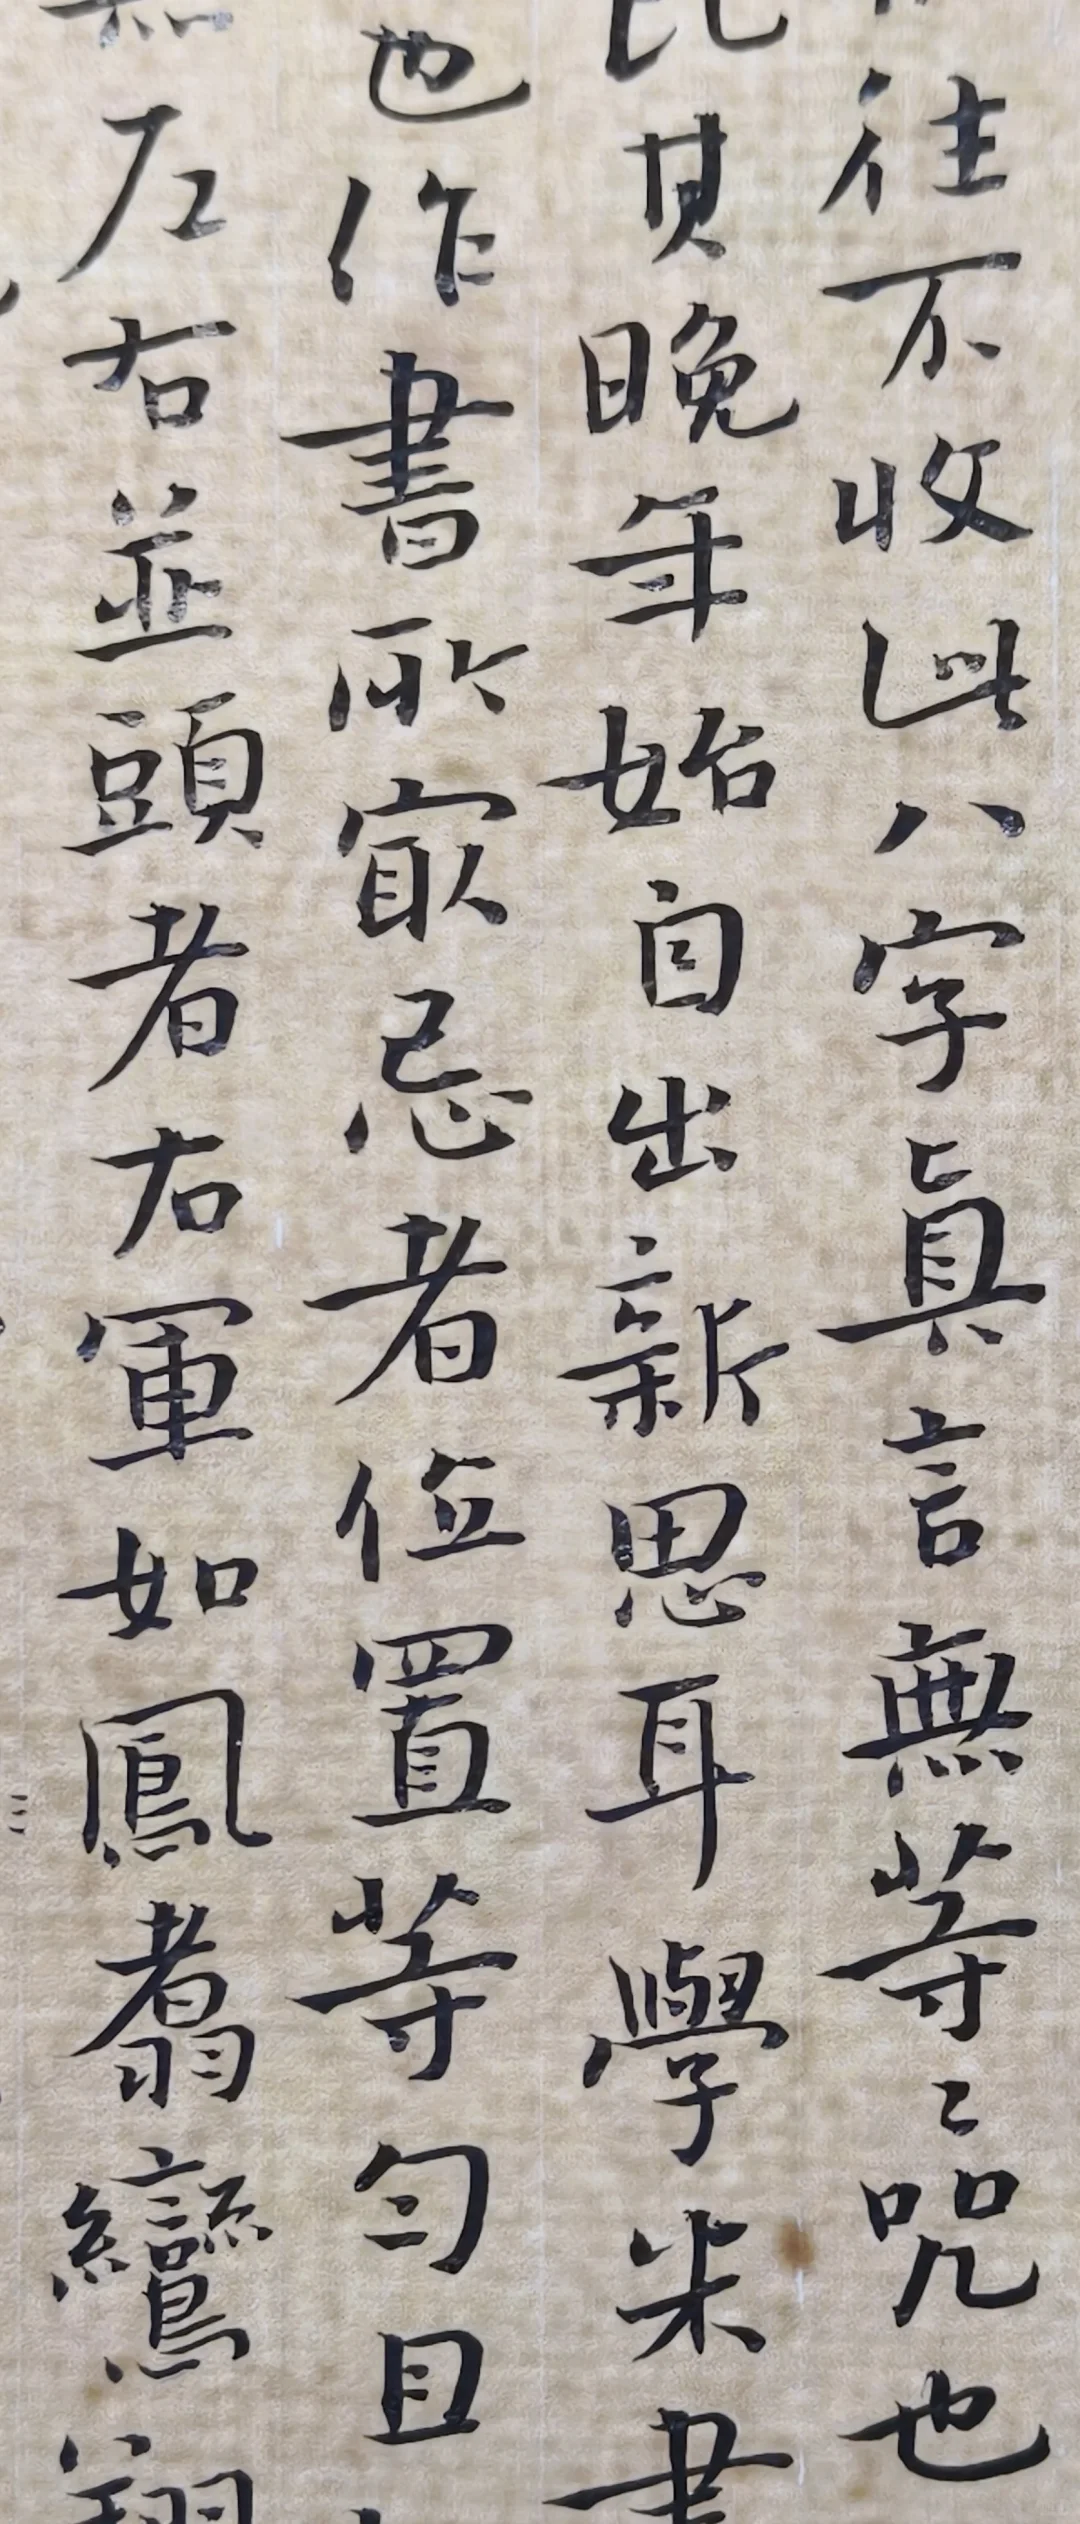 往不收此八字真言無等〻咒也
其晚年始自出新思耳學米書
也作書所寂忌者位置等勻且
左右並頭者右軍如鳳翥鸞翔